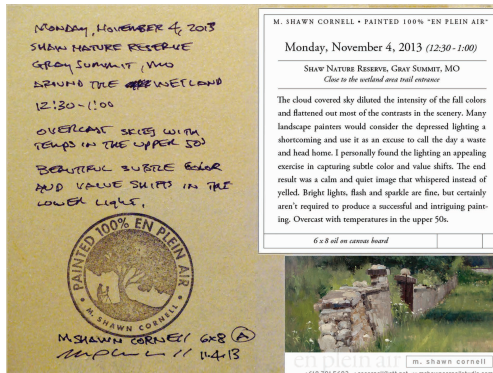 MONDAY, NOVEMBER 4, 2013
SHAW NATURE RESERVE
GRAY SUMMIT, MO
AROUND THE WETLAND
12:30-1:00
OVERCAST SKIES WITH
TEMPS IN THE UPPER 50S
BEAUTIFUL SUBTLE COLOR
AND VALUE SHIFTS IN THE
LOWER LIGHT.
PAINTED 100% EN PLEIN AIR
• M. SHAWN CORNELL •
M SHAWN CORNELL 6x8 A
11.4.13
M. SHAWN CORNELL • PAINTED 100% "EN PLEIN AIR"
Monday, November 4, 2013 (12:30 - 1:00)
SHAW NATURE RESERVE, GRAY SUMMIT, MO
Close to the wetland area trail entrance
The cloud covered sky diluted the intensity of the fall colors
and flattened out most of the contrasts in the scenery. Many
landscape painters would consider the depressed lighting a
shortcoming and use it as an excuse to call the day a waste
and head home. I personally found the lighting an appealing
exercise in capturing subtle color and value shifts. The end
result was a calm and quiet image that whispered instead of
yelled. Bright lights, flash and sparkle are fine, but certainly
aren't required to produce a successful and intriguing paint-
ing. Overcast with temperatures in the upper 50s.
6 x 8 oil on canvas board
en plein air
m. shawn cornell